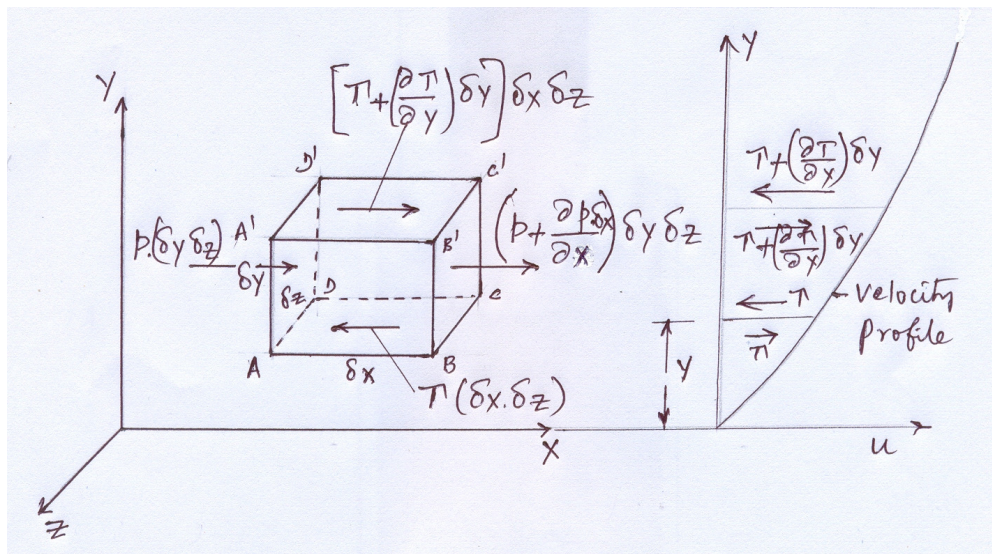 Y
[τ+(∂τ/∂y)δy]δx δz
D'
C'
p.(δy δz)
A'
B'
(p+∂p/∂x δx)δy δz
δy
δz
D
C
A
δx
B
τ(δx.δz)
X
Z
Y
τ+(∂τ/∂x)δy
τ+(∂τ/∂x)δy
τ
velocity
profile
τ
y
u